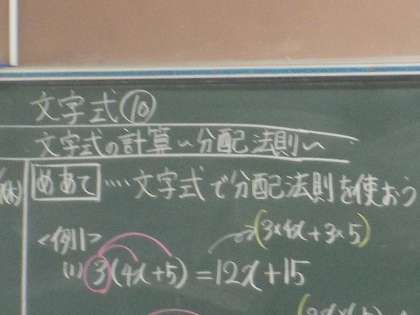 文字式⑩
文字式の計算~分配法則~
めあて ‥‥文字式で分配法則を使おう
(3×4x+3×5)
<例1>
(1) 3(4x+5) = 12x+15